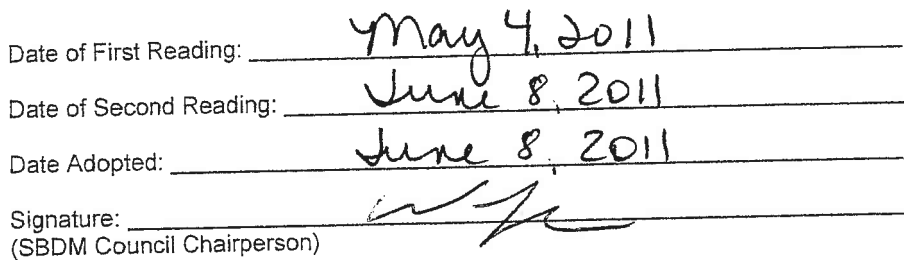 Date of First Reading: May 4, 2011
Date of Second Reading: June 8, 2011
Date Adopted: June 8, 2011
Signature:
(SBDM Council Chairperson)